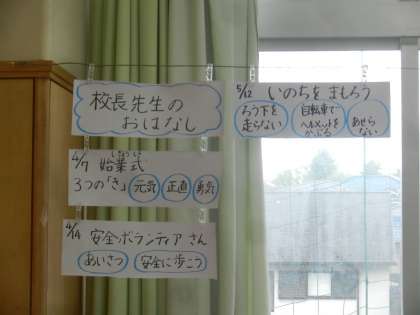 校長先生の
おはなし
4/7 始業式
しぎょうしき
3つの「き」 元気 正直 勇気
4/14 安全ボランティアさん
あいさつ 安全に歩こう
5/12 いのちを まもろう
ろう下を
走らない
自転車で
ヘルメットを
かぶる
あせら
ない